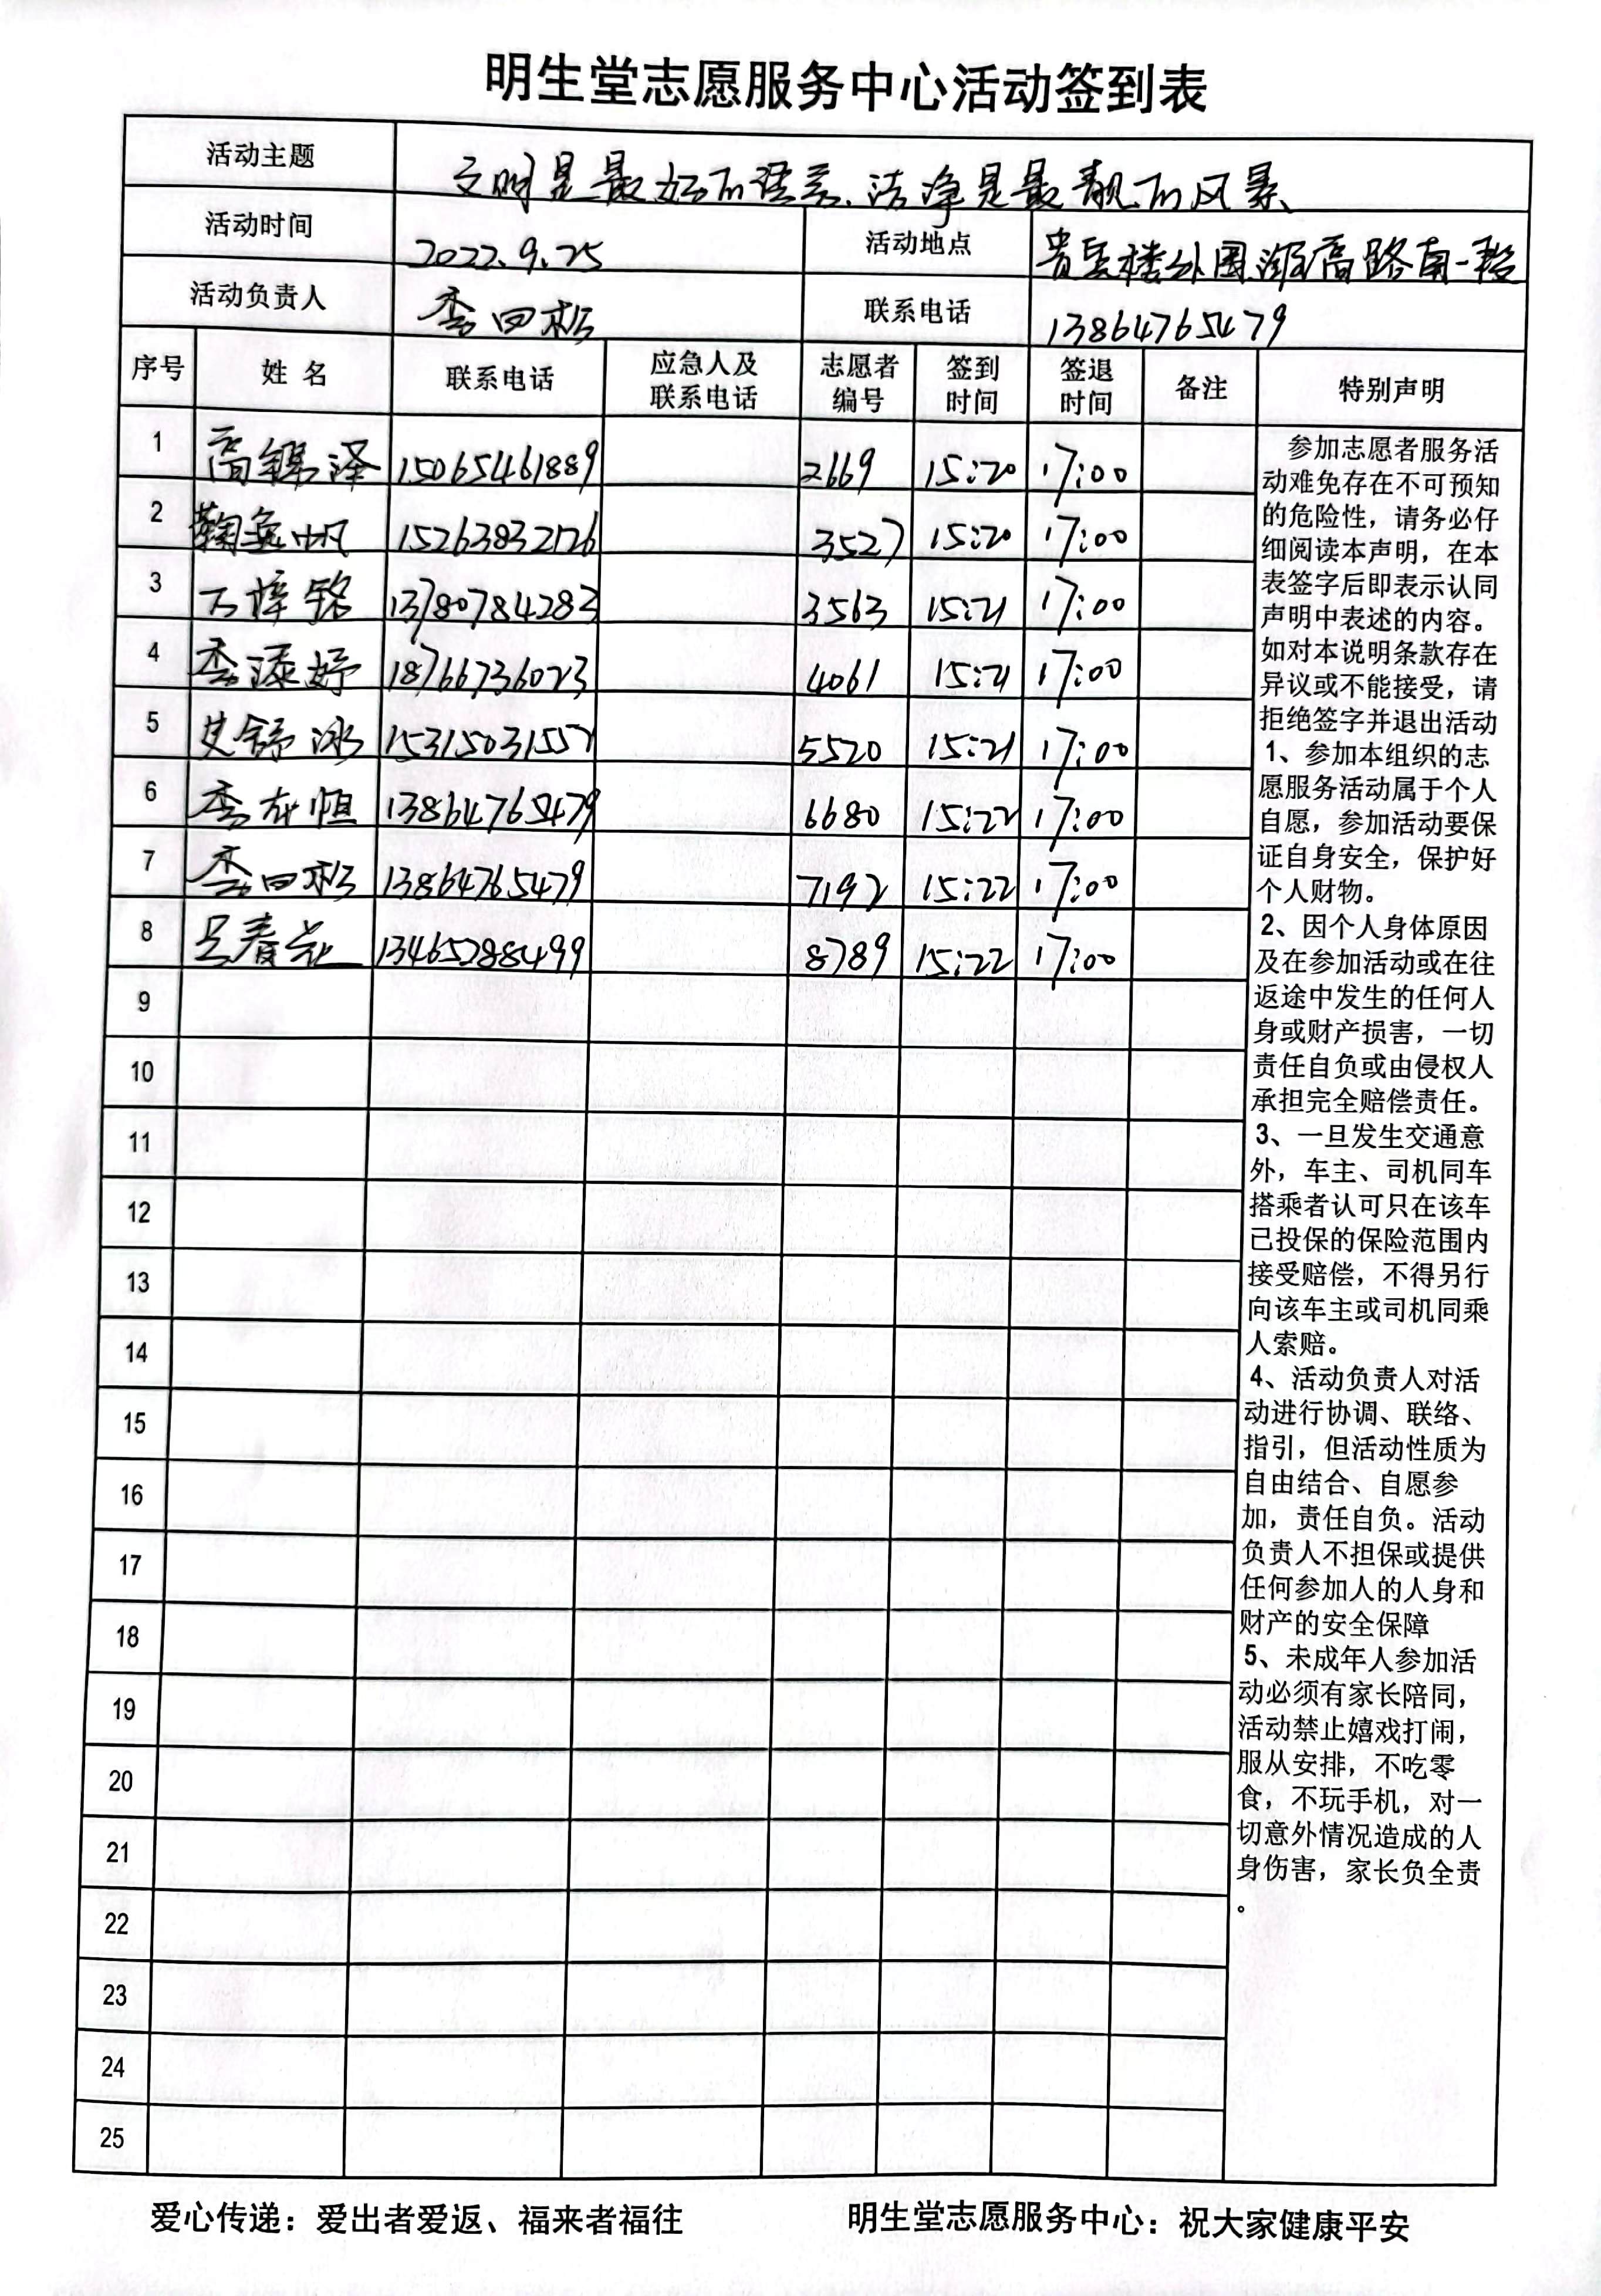 明生堂志愿服务中心活动签到表
活动主题 文明是最好的语言、洁净是最靓的风景
活动时间 2022.9.25 活动地点 贵皇楼外围潍高路南一段
活动负责人 李四松 联系电话 13864765479
序号 姓 名 联系电话 应急人及联系电话 志愿者编号 签到时间 签退时间 备注 特别声明
1 高锦泽 15065461889 2669 15:20 17:00
2 鞠逸帆 15263832126 3527 15:20 17:00
3 梓铭 13780784283 3563 15:21 17:00
4 李添妤 18766736023 4061 15:21 17:00
5 艾舒冰 15315031557 5520 15:21 17:00
6 李恒 13864765479 6680 15:22 17:00
7 李四松 13864765479 7192 15:22 17:00
8 吕春花 13465288499 8789 15:22 17:00
9
10
11
12
13
14
15
16
17
18
19
20
21
22
23
24
25
参加志愿者服务活
动难免存在不可预知
的危险性，请务必仔
细阅读本声明，在本
表签字后即表示认同
声明中表述的内容。
如对本说明条款存在
异议或不能接受，请
拒绝签字并退出活动
1、参加本组织的志
愿服务活动属于个人
自愿，参加活动要保
证自身安全，保护好
个人财物。
2、因个人身体原因
及在参加活动或在往
返途中发生的任何人
身或财产损害，一切
责任自负或由侵权人
承担完全赔偿责任。
3、一旦发生交通意
外，车主、司机同车
搭乘者认可只在该车
已投保的保险范围内
接受赔偿，不得另行
向该车主或司机同乘
人索赔。
4、活动负责人对活
动进行协调、联络、
指引，但活动性质为
自由结合、自愿参
加，责任自负。活动
负责人不担保或提供
任何参加人的人身和
财产的安全保障
5、未成年人参加活
动必须有家长陪同，
活动禁止嬉戏打闹，
服从安排，不吃零
食，不玩手机，对一
切意外情况造成的人
身伤害，家长负全责
。
爱心传递：爱出者爱返、福来者福往 明生堂志愿服务中心：祝大家健康平安